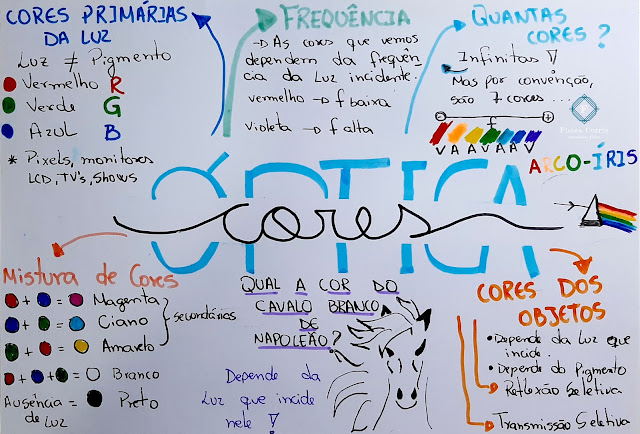 CORES PRIMÁRIAS
DA LUZ
Luz ≠ Pigmento
Vermelho R
Verde G
Azul B
* Pixels, monitores
LCD, TV's, Shows
FREQUÊNCIA
→ As cores que vemos
dependem da frequên-
cia da Luz incidente.
vermelho → f baixa
violeta → f alta
QUANTAS
CORES?
Infinitas
Mas por convenção,
são 7 cores ...
- f +
V A A V A A V
ARCO-ÍRIS
ÓPTICA
cores
Mistura de Cores
+ = Magenta
+ = Ciano
+ = Amarelo
secundárias
+ + = Branco
Ausência = Preto
de Luz
QUAL A COR DO
CAVALO BRANCO
DE
NAPOLEÃO?
Depende da
Luz que incide
nele
CORES DOS
OBJETOS
• Depende da Luz que
incide.
• Depende do Pigmento
Reflexão Seletiva
Transmissão Seletiva